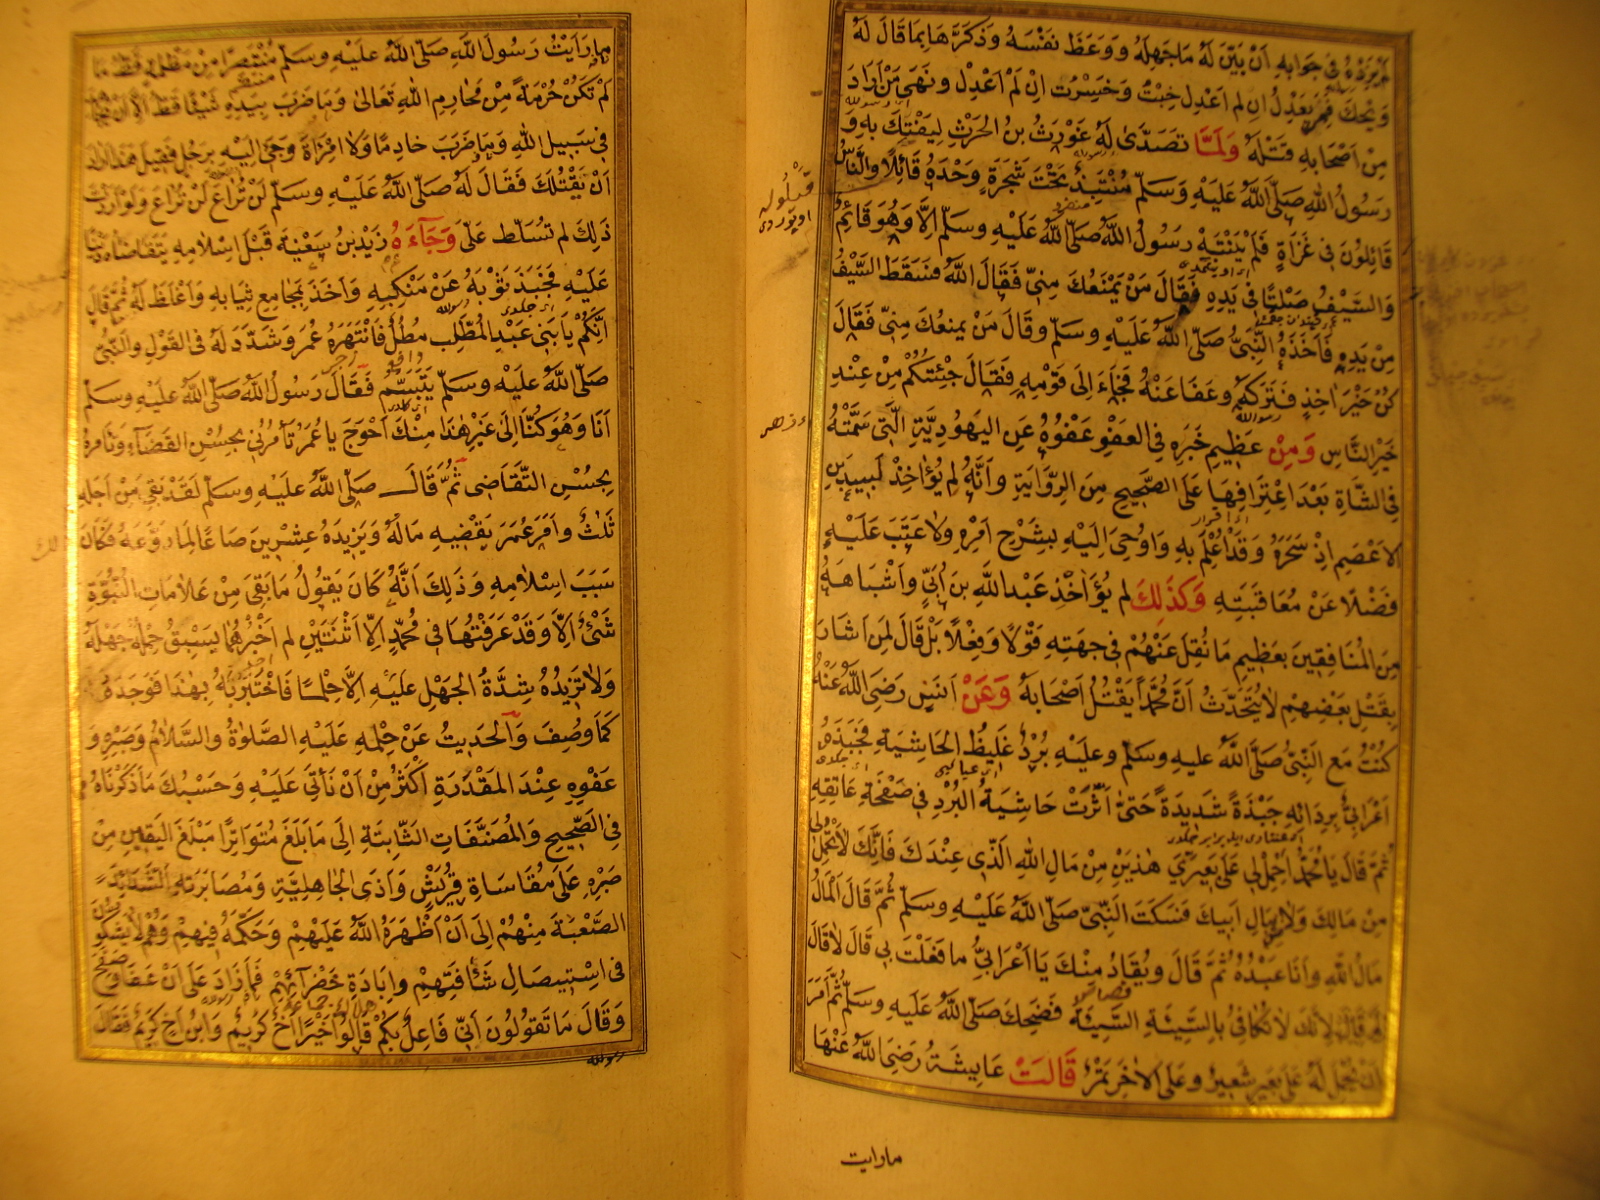 لم يزده في جوابه ان بين له ما جهله ووعظ نفسه وذكرها بما قال له
ويحك فمن يعدل ان لم اعدل خبت وخسرت ان لم اعدل ونهى من اراد
من اصحابه قتله ولما تصدى له غورث بن الحرث ليفتك به و
رسول الله صلى الله عليه وسلم منتبذ تحت شجرة وحده قائلا والناس
قائلون في غزاة فلم ينتبه رسول الله صلى الله عليه وسلم الا وهو قائم
والسيف صلتا في يده فقال من يمنعك مني فقال الله فسقط السيف
من يده فاخذه النبي صلى الله عليه وسلم وقال من يمنعك مني فقال
كن خير اخذ فتركه وعفا عنه فجاء الى قومه فقال جئتكم من عند
خير الناس ومن عظيم خبره في العفو عفوه عن اليهودية التي سمته
في الشاة بعد اعترافها على الصحيح من الرواية وانه لم يؤاخذ لبيد بن
الاعصم اذ سحره وقد اعلم به واوحي اليه بشرح امره ولا عتب عليه
فضلا عن معاقبته وكذلك لم يؤاخذ عبد الله بن ابي واشباهه
من المنافقين بعظيم ما نقل عنهم في جهته قولا وفعلا بل قال لمن اشار
بقتل بعضهم لا يتحدث ان محمدا يقتل اصحابه وعن انس رضي الله عنه
كنت مع النبي صلى الله عليه وسلم وعليه برد غليظ الحاشية فجبذه
اعرابي بردائه جبذة شديدة حتى اثرت حاشية البرد في صفحة عاتقه
ثم قال يا محمد احمل لي على بعيري هذين من مال الله الذي عندك فانك لا تحمل لي
من مالك ولا مال ابيك فسكت النبي صلى الله عليه وسلم ثم قال المال
مال الله وانا عبده ثم قال ويقاد منك يا اعرابي ما فعلت بي قال لا قال
لم قال لانك لا تكافئ بالسيئة السيئة فضحك صلى الله عليه وسلم ثم امر
ان يحمل له على بعير شعير وعلى الاخر تمر قالت عايشة رضي الله عنها
مارايت
ما رايت رسول الله صلى الله عليه وسلم منتصرا من مظلمة قط ما
لم تكن حرمة من محارم الله تعالى وما ضرب بيده شيئا قط الا ان يجاهد
في سبيل الله وما ضرب خادما ولا امراة وجئ اليه برجل فقيل هذا اراد
ان يقتلك فقال له صلى الله عليه وسلم لن تراع لن تراع ولو اردت
ذلك لم تسلط علي وجاءه زيد بن سعنة قبل اسلامه يتقاضاه دينا
عليه فجبذ ثوبه عن منكبه واخذ بمجامع ثيابه واغلظ له ثم قال
انكم يا بني عبد المطلب مطل فانتهره عمر وشدد له في القول والنبي
صلى الله عليه وسلم يتبسم فقال رسول الله صلى الله عليه وسلم
انا وهو كنا الى غير هذا منك احوج يا عمر تأمرني بحسن القضاء وتامره
بحسن التقاضى ثم قال صلى الله عليه وسلم لقد بقي من اجله
ثلث وامر عمر يقضيه ماله ويزيده عشرين صاعا لما روعه فكان
سبب اسلامه وذلك انه كان يقول ما بقي من علامات النبوة
شئ الا وقد عرفتها في محمد الا اثنتين لم اخبرهما يسبق حلمه جهله
ولا تزيده شدة الجهل عليه الا حلما فاختبرته بهذا فوجده
كما وصف والحديث عن حلمه عليه الصلوة والسلام وصبره و
عفوه عند المقدرة اكثر من ان نأتى عليه وحسبك ما ذكرناه
في الصحيح والمصنفات الثابتة الى ما بلغ متواترا مبلغ اليقين من
صبره على مقاساة قريش واذى الجاهلية ومصابرته الشدايد
الصعبة منهم الى ان اظهره الله عليهم وحكمه فيهم وهم لا يشكون
في استيصال شأفتهم وابادة خضرائهم فما زاد على ان عفا وصفح
وقال ما تقولون اني فاعل بكم قالوا خيرا اخ كريم وابن اخ كريم فقال